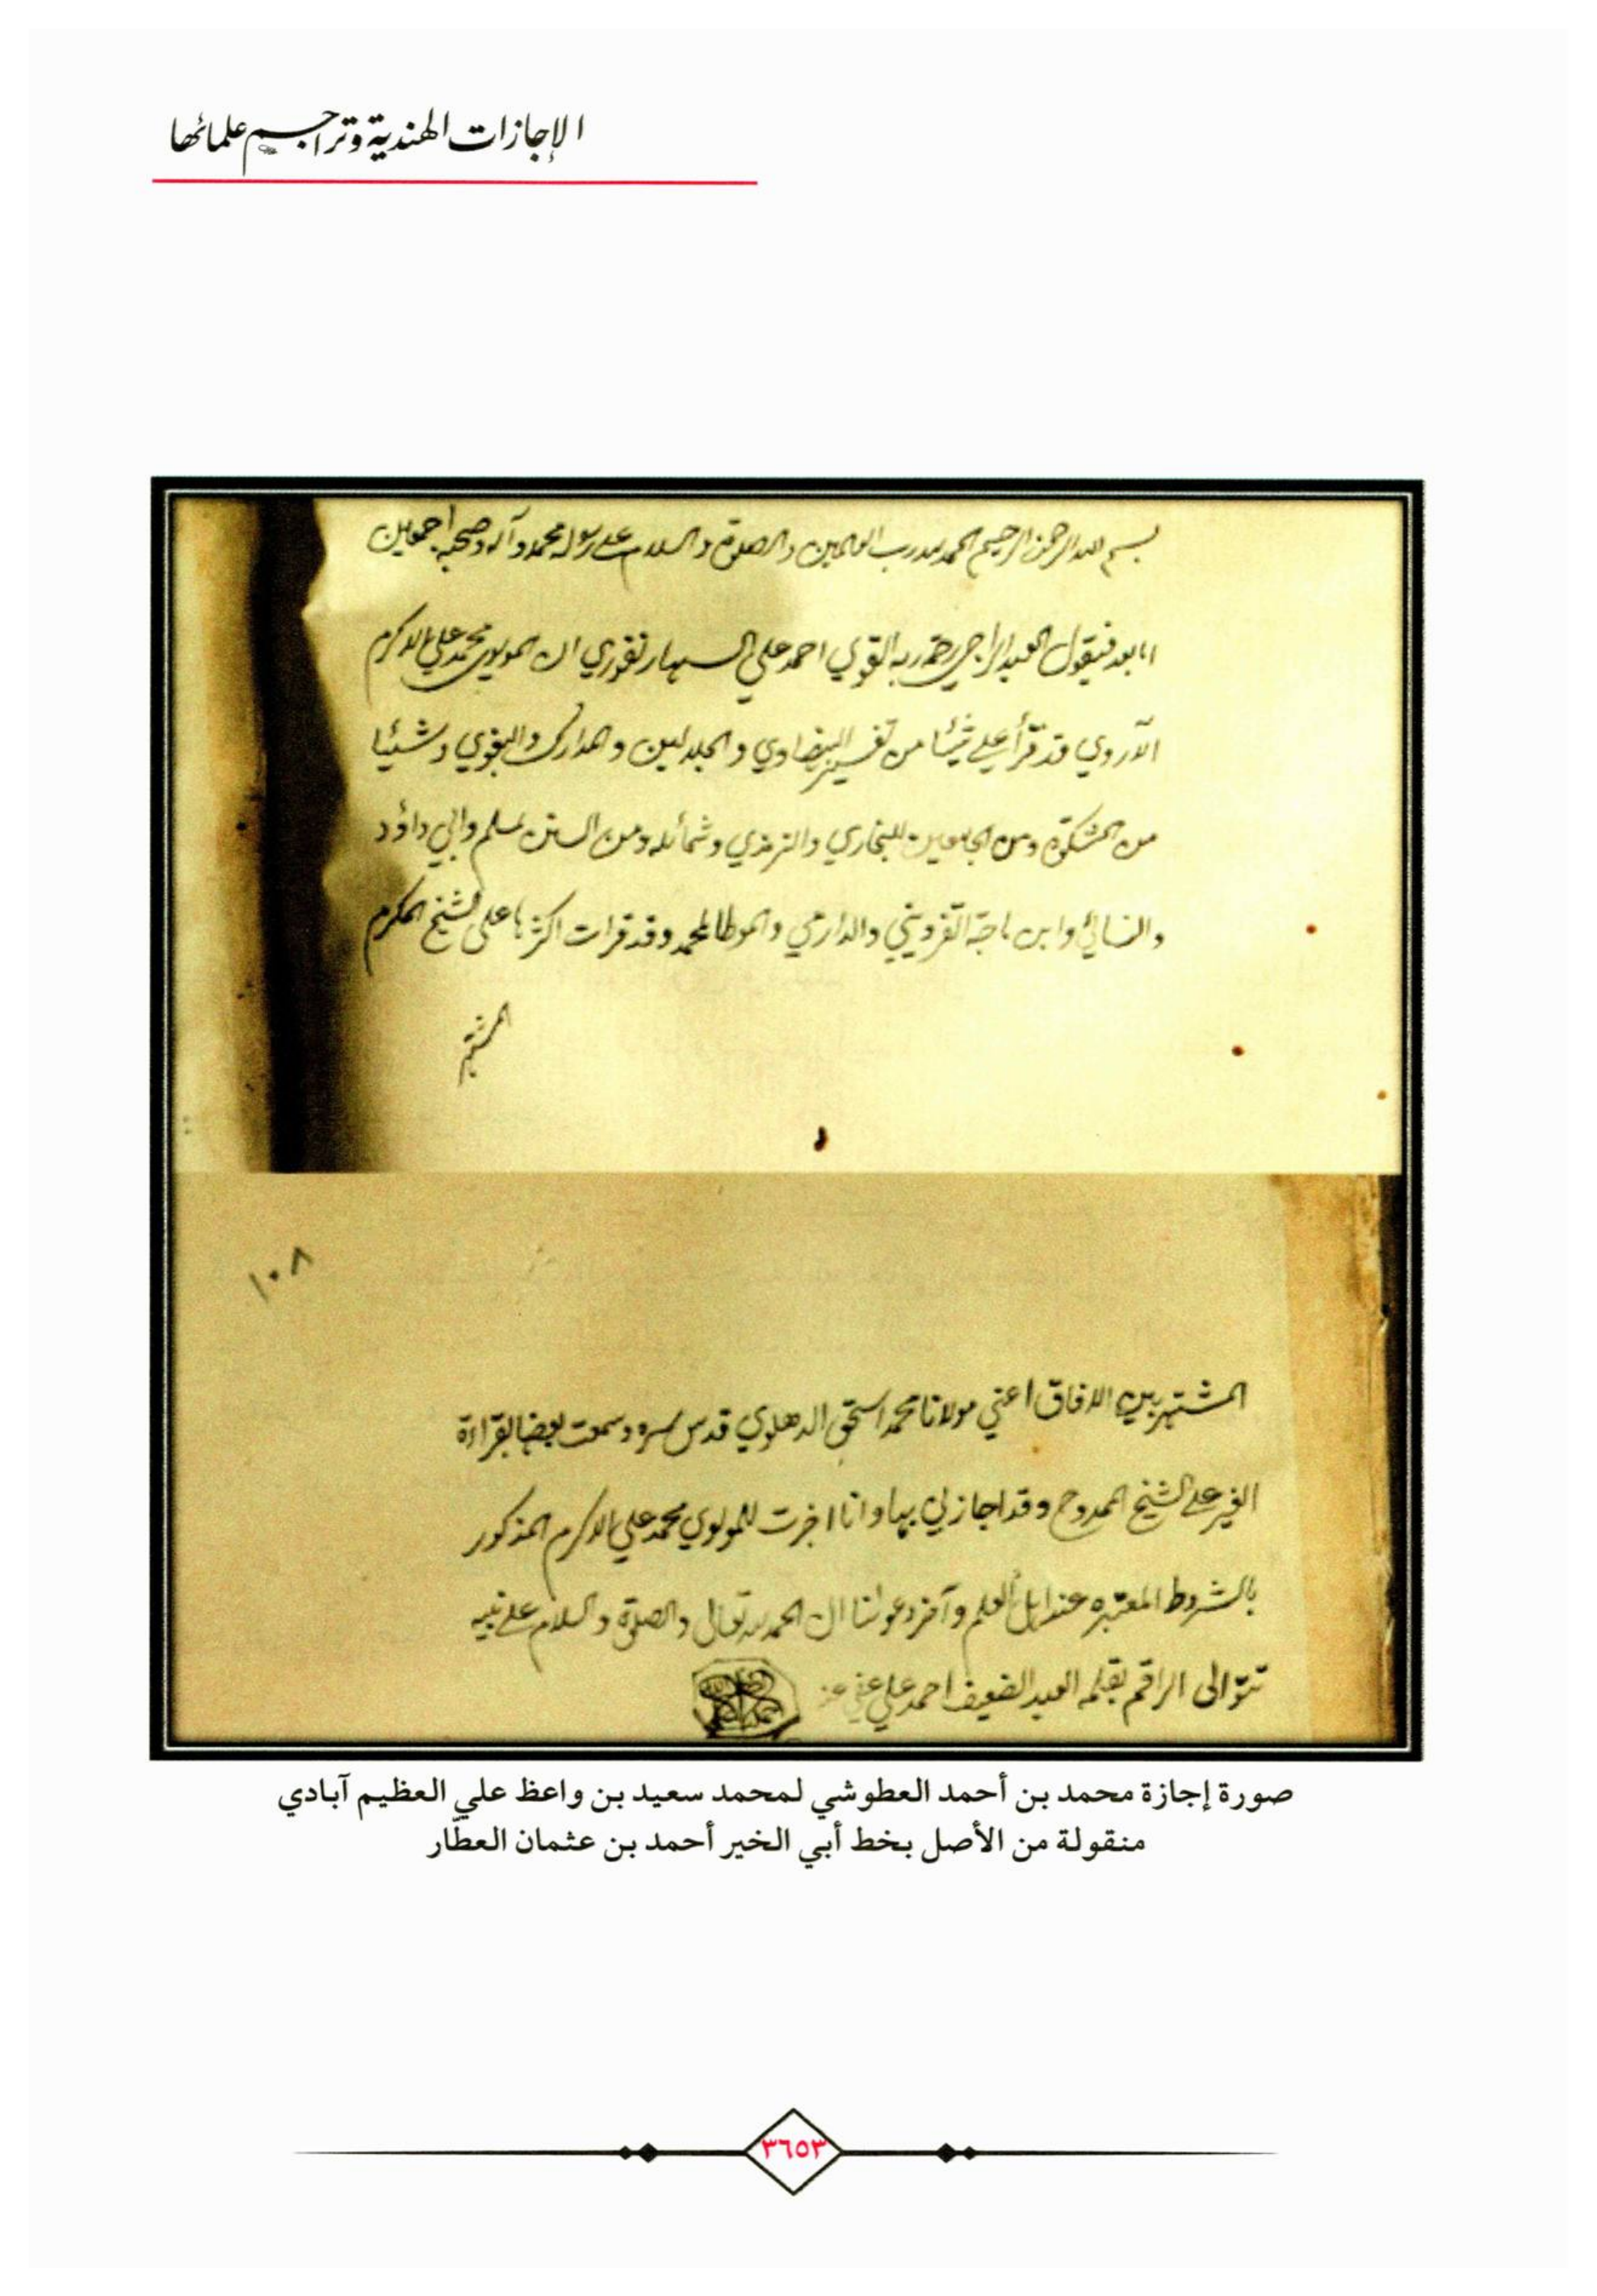 الإجازات الهندية وتراجم علمائها
بسم الله الرحمن الرحيم الحمد لله رب العالمين والصلوة والسلام على رسوله محمد وآله وصحبه اجمعين
اما بعد فيقول العبد الراجي رحمة ربه القوي احمد علي السهارنفوري ان المولوي محمد علي الاكرم
الآروي قد قرأ علي شيئا من تفسير البيضاوي والجلالين والمدارك والبغوي وشيئا
من المشكوة ومن الجامعين للبخاري والترمذي وشمائله ومن السنن لمسلم وابي داؤد
والنسائي وابن ماجة القزويني والدارمي والموطا لمحمد وقد قرات اكثرها على الشيخ المكرم
المشتهر
١٠٨
المشتهر بين الافاق اعني مولانا محمد اسحق الدهلوي قدس سره وسمعت بعضها بقراءة
الغير على الشيخ الممدوح وقد اجازلي بها وانا اجزت للمولوي محمد علي الاكرم المذكور
بالشروط المعتبره عند اهل العلم وآخر دعوانا ان الحمد لله تعالى والصلوة والسلام على نبيه
تتوالى الراقم بقلمه العبد الضعيف احمد علي عفي عنه
صورة إجازة محمد بن أحمد العطوشي لمحمد سعيد بن واعظ علي العظيم آبادي
منقولة من الأصل بخط أبي الخير أحمد بن عثمان العطّار
٣٦٥٣